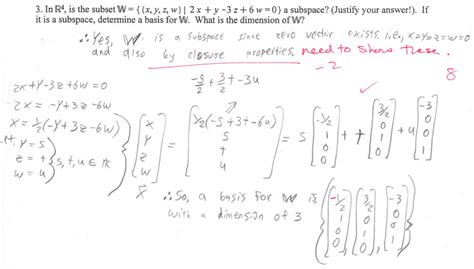 3. In R⁴, is the subset W = { (x, y, z, w) | 2 x + y - 3 z + 6 w = 0 } a subspace? (Justify your answer!). If
it is a subspace, determine a basis for W. What is the dimension of W?
∴ Yes, W is a subspace since zero vector exists, i.e., x=y=z=w=0
and also by closure properties, need to show these.
-2
8
-s/2 + 3/2 t - 3u
2x+y-3z+6w=0
2x = -y+3z-6w
x = ½(-y+3z-6w)
let, y = s
z = t
w = u
} s, t, u ∈ R
[x y z w] = [½(-s+3t-6u) s t u] = s [-½ 1 0 0] + t [3/2 0 1 0] + u [-3 0 0 1]
x
∴ So, a basis for W is { [-½ 1 0 0] [3/2 0 1 0] [-3 0 0 1] }
with a dimension of 3